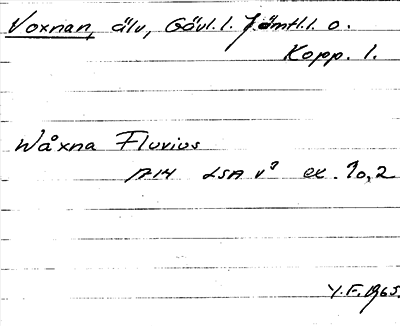 Voxnan, älv, Gävl.l. Jämtl.l. o.
Kopp. l.
Wåxna Fluvius
A14 LSA v⁹ ex. 10,2
Y.F. 1965.